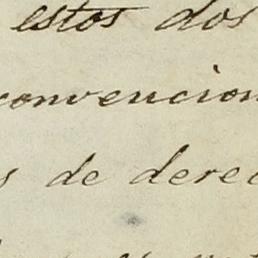 estos dos
convencion
s de derec